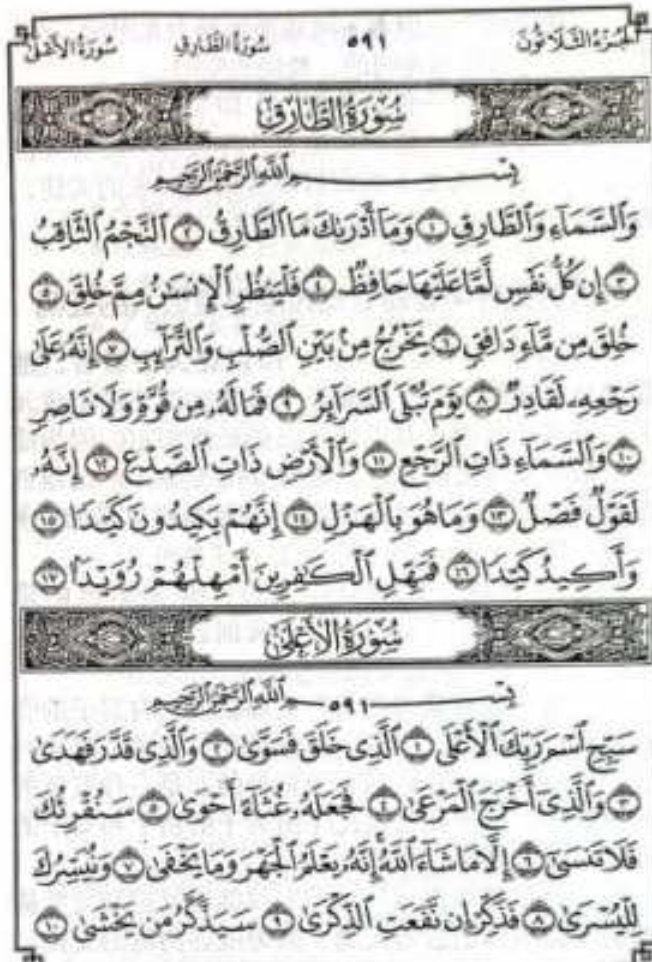 الجزء الثلاثون ٥٩١ سورة الطارق سورة الأعلى
سُورَةُ الطَّارِقِ
بِسْمِ اللَّهِ الرَّحْمَٰنِ الرَّحِيمِ
وَالسَّمَاءِ وَالطَّارِقِ ١ وَمَا أَدْرَىٰكَ مَا الطَّارِقُ ٢ النَّجْمُ الثَّاقِبُ
٣ إِن كُلُّ نَفْسٍ لَّمَّا عَلَيْهَا حَافِظٌ ٤ فَلْيَنظُرِ الْإِنسَٰنُ مِمَّ خُلِقَ ٥
خُلِقَ مِن مَّاءٍ دَافِقٍ ٦ يَخْرُجُ مِنۢ بَيْنِ الصُّلْبِ وَالتَّرَائِبِ ٧ إِنَّهُۥ عَلَىٰ
رَجْعِهِۦ لَقَادِرٌ ٨ يَوْمَ تُبْلَى السَّرَائِرُ ٩ فَمَا لَهُۥ مِن قُوَّةٍ وَلَا نَاصِرٍ
١٠ وَالسَّمَاءِ ذَاتِ الرَّجْعِ ١١ وَالْأَرْضِ ذَاتِ الصَّدْعِ ١٢ إِنَّهُۥ
لَقَوْلٌ فَصْلٌ ١٣ وَمَا هُوَ بِالْهَزْلِ ١٤ إِنَّهُمْ يَكِيدُونَ كَيْدًا ١٥
وَأَكِيدُ كَيْدًا ١٦ فَمَهِّلِ الْكَٰفِرِينَ أَمْهِلْهُمْ رُوَيْدًۢا ١٧
سُورَةُ الْأَعْلَىٰ
بِسْمِ اللَّهِ الرَّحْمَٰنِ الرَّحِيمِ
٥٩١
سَبِّحِ اسْمَ رَبِّكَ الْأَعْلَى ١ الَّذِي خَلَقَ فَسَوَّىٰ ٢ وَالَّذِي قَدَّرَ فَهَدَىٰ
٣ وَالَّذِي أَخْرَجَ الْمَرْعَىٰ ٤ فَجَعَلَهُۥ غُثَاءً أَحْوَىٰ ٥ سَنُقْرِئُكَ
فَلَا تَنسَىٰ ٦ إِلَّا مَا شَاءَ اللَّهُ إِنَّهُۥ يَعْلَمُ الْجَهْرَ وَمَا يَخْفَىٰ ٧ وَنُيَسِّرُكَ
لِلْيُسْرَىٰ ٨ فَذَكِّرْ إِن نَّفَعَتِ الذِّكْرَىٰ ٩ سَيَذَّكَّرُ مَن يَخْشَىٰ ١٠